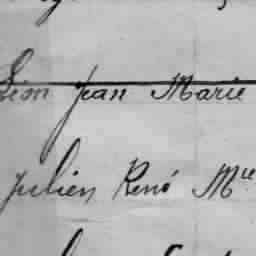 Jean Marie
Julien René Mie